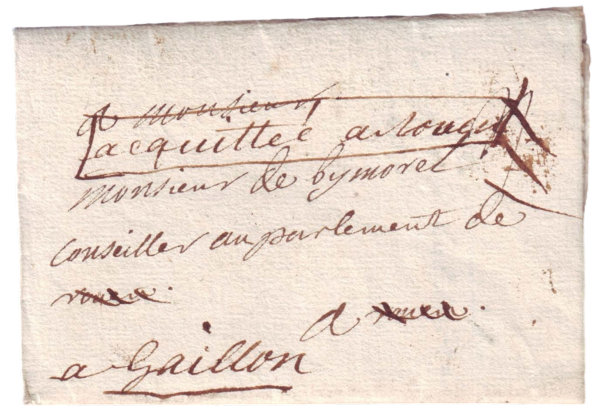 a monsieur
acquittée a rouen
monsieur de bymorel
conseiller au parlement de
rouen.
a rouen.
a Gaillon